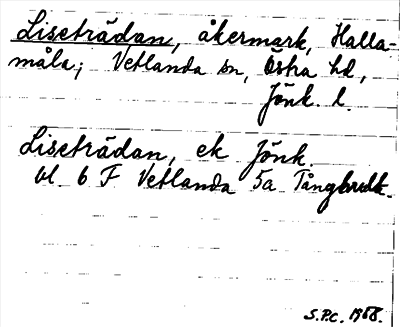 Liseträdan, åkermark, Halla-
måla; Vetlanda sn, Östra hd,
Jönk. l.
Liseträdan, ek Jönk.
bl. 6 F Vetlanda 5a
S.P.C. 1968.